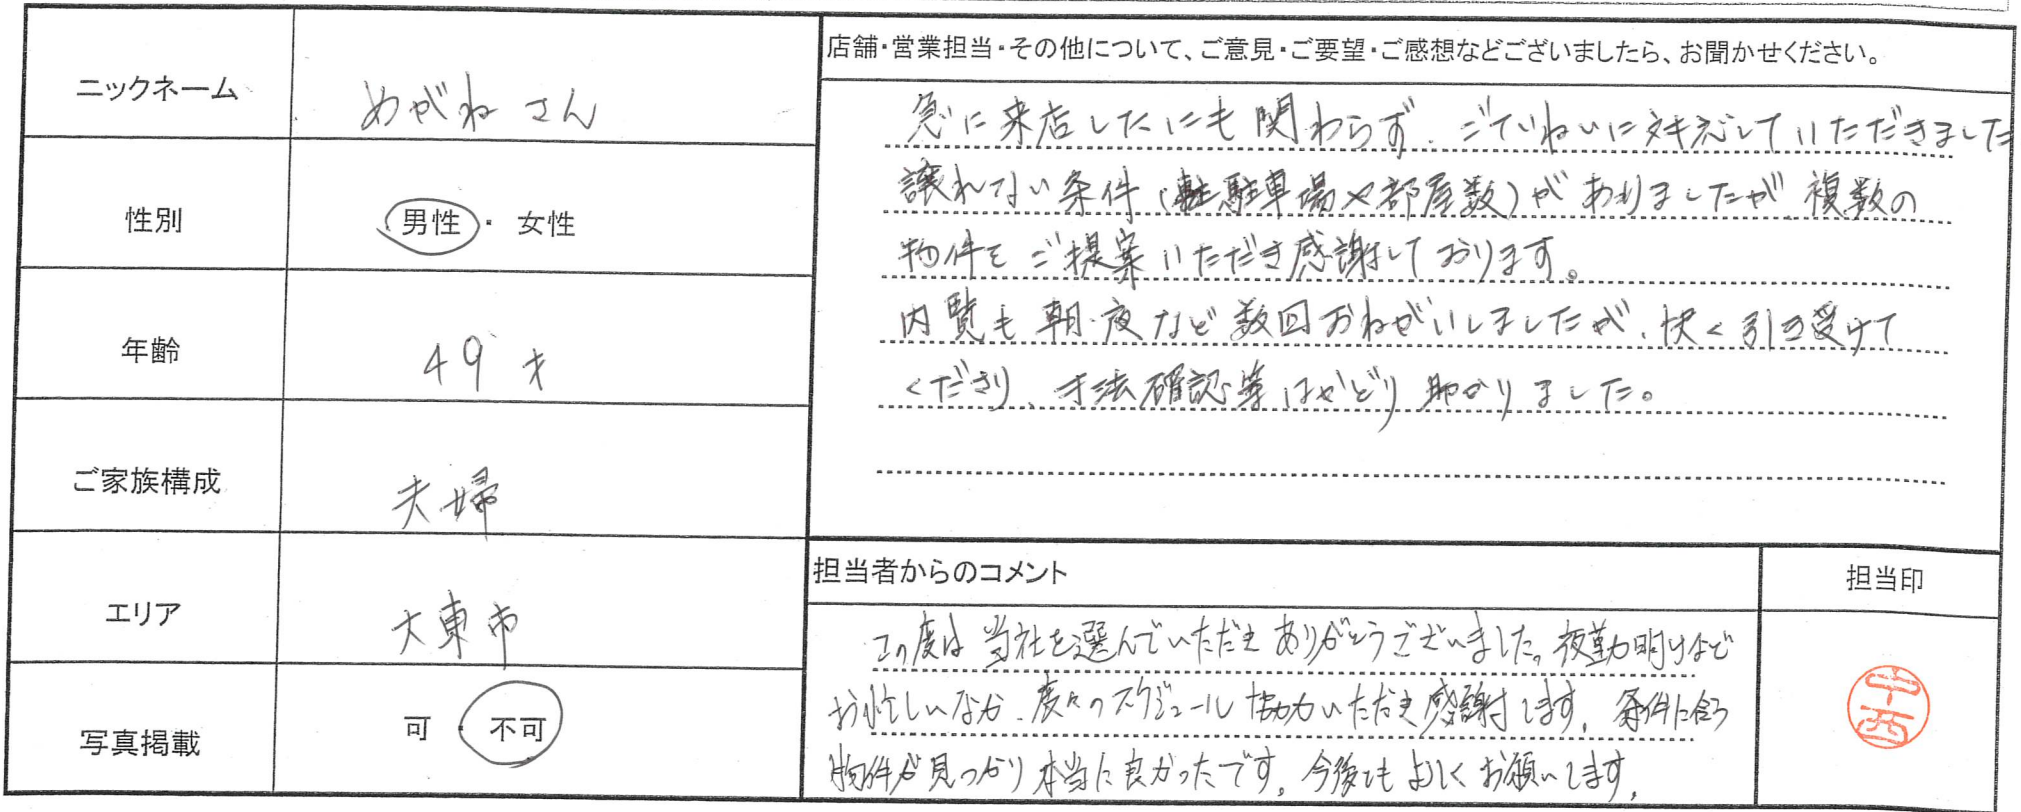 ニックネーム
めがねさん
性別
男性・女性
年齢
49才
ご家族構成
夫婦
エリア
大東市
写真掲載
可・不可
店舗・営業担当・その他について、ご意見・ご要望・ご感想などございましたら、お聞かせください。
急に来店したにも関わらず、ごていねいに対応していただきました
譲れない条件(駐車場や部屋数)がありましたが、複数の
物件をご提案いただき感謝しております。
内覧も朝・夜など数回おねがいしましたが、快く引き受けて
くださり、寸法確認等はかどり助かりました。
担当者からのコメント
この度は当社を選んでいただきありがとうございました。夜勤明けなど
お忙しいなか、度々のスケジュール協力いただき感謝します。条件に合う
物件が見つかり本当に良かったです。今後ともよろしくお願いします。
担当印
中西